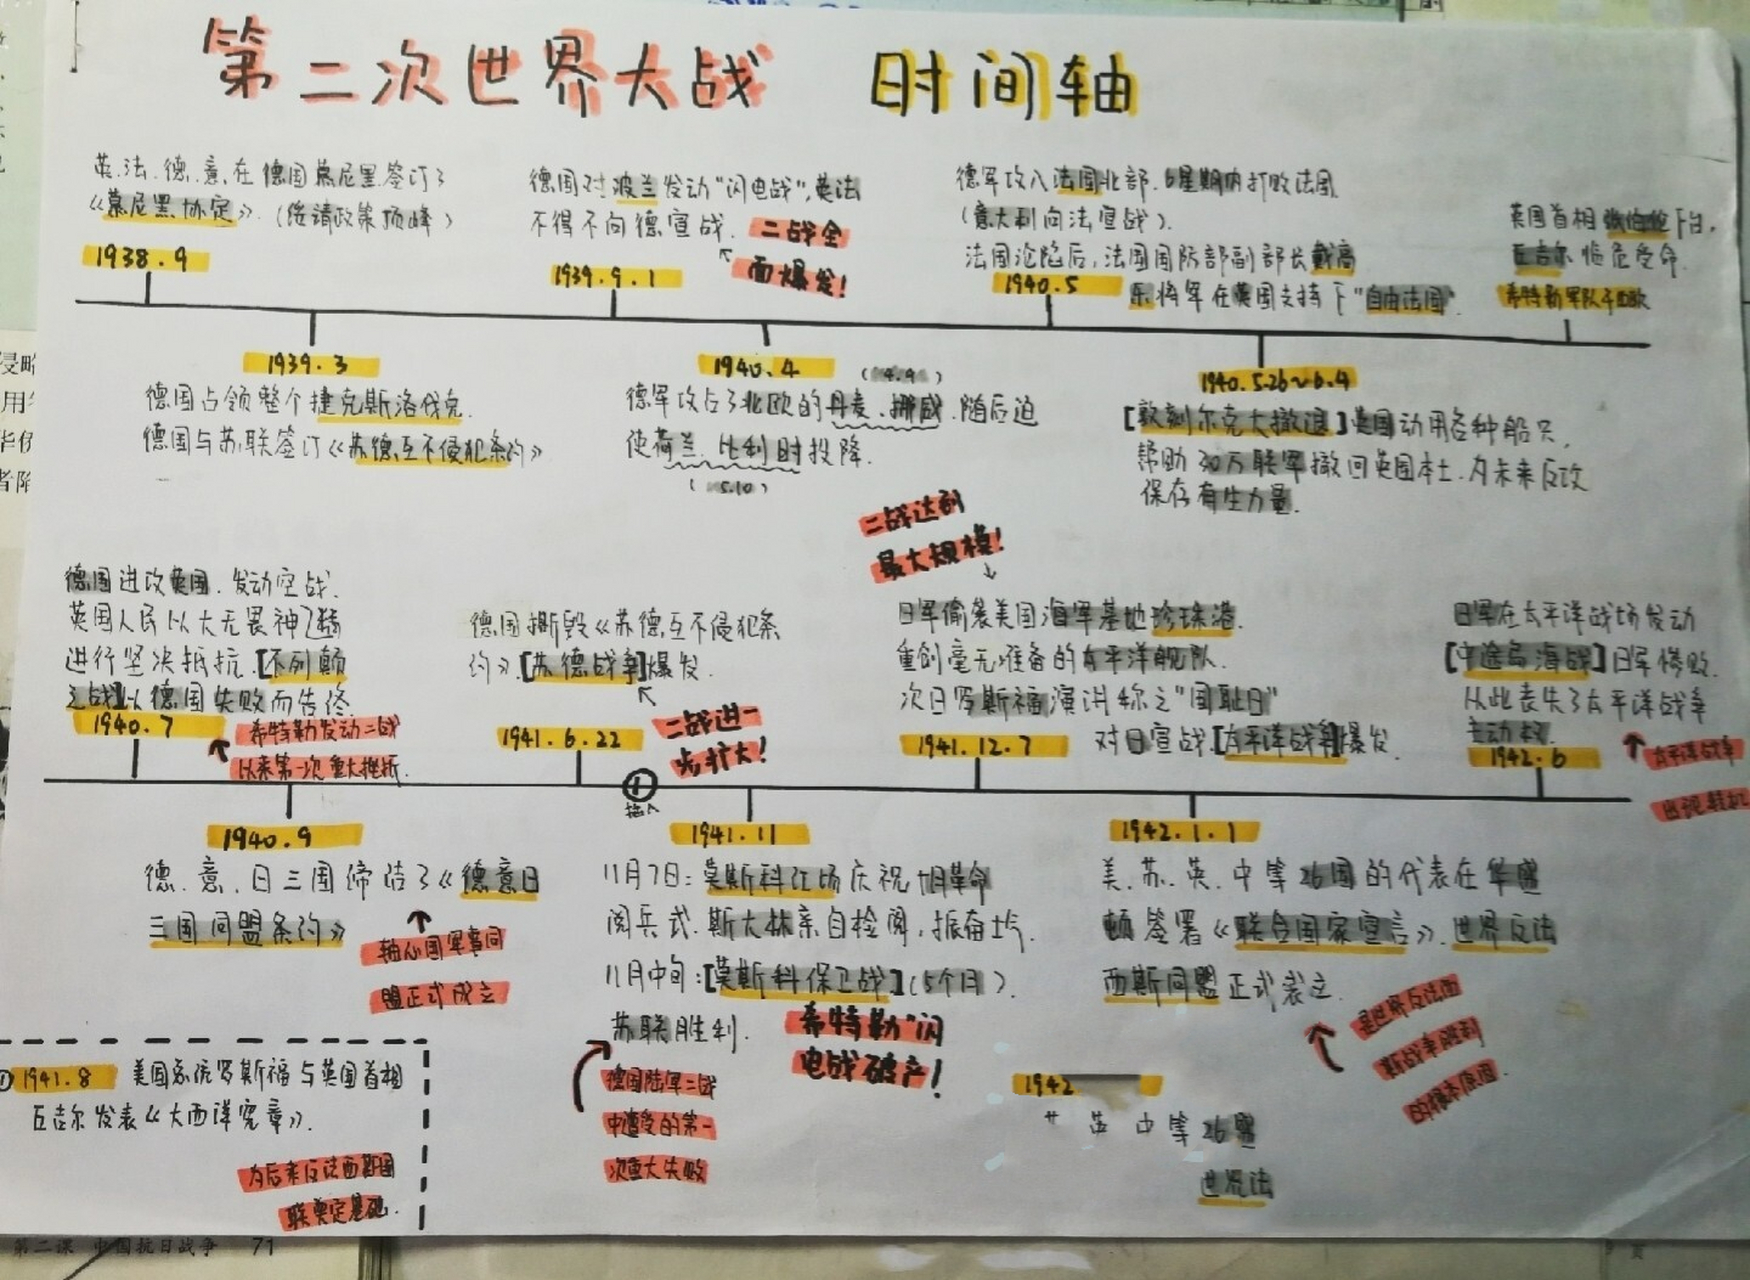 第二次世界大战 时间轴
英.法.德.意在德国慕尼黑签订了
《慕尼黑协定》.(绥靖政策顶峰)
1938.9
德国对波兰发动"闪电战",英法
不得不向德宣战.
二战全
面爆发!
1939.9.1
德军攻入法国北部.6星期内打败法国.
(意大利向法宣战).
法国沦陷后,法国国防部副部长戴高
乐将军在英国支持下"自由法国".
1940.5
英国首相张伯伦下台,
丘吉尔临危受命.
1939.3
德国占领整个捷克斯洛伐克.
德国与苏联签订《苏德互不侵犯条约》
1940.4
(4.9)
德军攻占了北欧的丹麦.挪威.随后迫
使荷兰.比利时投降.
(5.10)
1940.5.26~6.4
[敦刻尔克大撤退]英国动用各种船只,
帮助30万联军撤回英国本土.为未来反攻
保存有生力量.
德国进攻英国.发动空战.
英国人民以大无畏神了精
进行坚决抵抗.[不列颠
之战]以德国失败而告终.
1940.7
希特勒发动二战
以来第一次重大挫折.
德国撕毁《苏德互不侵犯条
约》.[苏德战争]爆发.
1941.6.22
二战进一
步扩大!
二战达到
最大规模!
日军偷袭美国海军基地珍珠港.
重创毫无准备的太平洋舰队.
次日罗斯福演讲称之"国耻日"
对日宣战.[太平洋战争]爆发.
1941.12.7
日军在太平洋战场发动
[中途岛海战]日军惨败.
从此丧失了太平洋战争
主动权.
1942.6
太平洋战争
出现转机
①
插入
1940.9
德.意.日三国缔结了《德意日
三国同盟条约》
轴心国军事同
盟正式成立
1941.11
11月7日:莫斯科红场庆祝十月革命
阅兵式.斯大林亲自检阅,振奋士气.
11月中旬:[莫斯科保卫战](5个月).
苏联胜利.
希特勒"闪
电战破产!
德国陆军二战
中遭受的第一
次重大失败
1942.1.1
美.苏.英.中等26国的代表在华盛
顿签署《联合国家宣言》.世界反法
西斯同盟正式表立.
是世界反法西
斯战争胜利
的根本原因.
①1941.8 美国总统罗斯福与英国首相
丘吉尔发表《大西洋宪章》.
为后来反法西斯国
联奠定基础.
1942
英 中等26盟
世界法
第二课 中国抗日战争 71